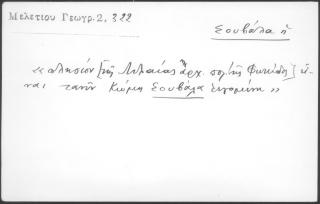 Μελετίου Γεωγρ.2, 322
Σουβάλα ἡ
«πλησίον [τῆς Λιλαίας ἀρχ. πόλ. τῆς Φωκίδος] εἶ-
ναι τανῦν Κώμη Σουβάλα λεγομένη»